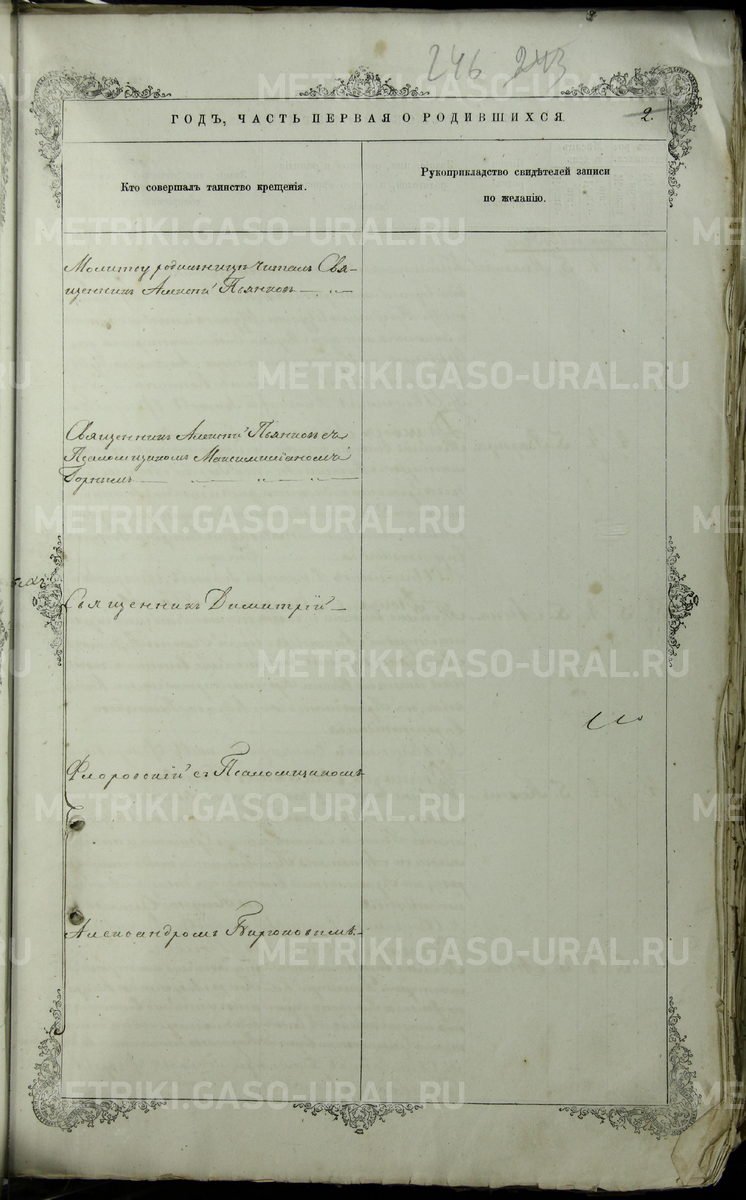 246 243
ГОДЪ, ЧАСТЬ ПЕРВАЯ О РОДИВШИХСЯ
2.
Кто совершалъ таинство крещенія.
Рукоприкладство свидѣтелей записи
по желанію.
Молитву родильницѣ читалъ Свя-
щенникъ Алексѣй Пьянковъ
Священникъ Алексѣй Пьянковъ съ
Псаломщикомъ Максимиліаномъ
Горнымъ
Священникъ Димитрій
Флоровскій съ Псаломщикомъ
Александромъ
METRIKI.GASO-URAL.RU